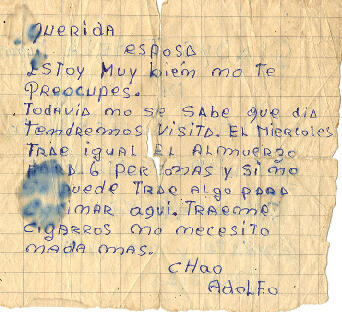 Querida
esposa
Estoy Muy bien mo Te
preocupes.
Todavia mo se sabe que dia
Tendremos visita. El Miercoles
Trae igual El Almuerzo
6 personas y si mo
puede Trae algo para
aqui. Traeme
cigarros mo mecesito
mada mas.
CHao
Adolfo